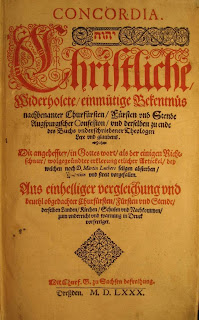 CONCORDIA.
יהוה
Christliche,
Widerholete, einmütige Bekentnüs
nachbenanter Churfürsten, Fürsten und Stende
Augspurgischer Confession, und derselben zu ende
des Buchs underschriebener Theologen
Lere und glaubens.
Mit angeheffter, in Gottes wort, als der einigen Richt-
schnur, wolgegründter erklerung etlicher Artickel, bey
welchen nach D. Martin Luthers seligen absterben,
und streit vorgefallen.
Aus einhelliger vergleichung und
bevehl obgedachter Churfürsten, Fürsten und Stende,
derselben Landen, Kirchen, Schulen und Nachkommen,
zum underricht und warnung in Druck
vorfertiget.
Mit Churf. G. zu Sachsen befreihung.
Dreßden. M. D. LXXX.